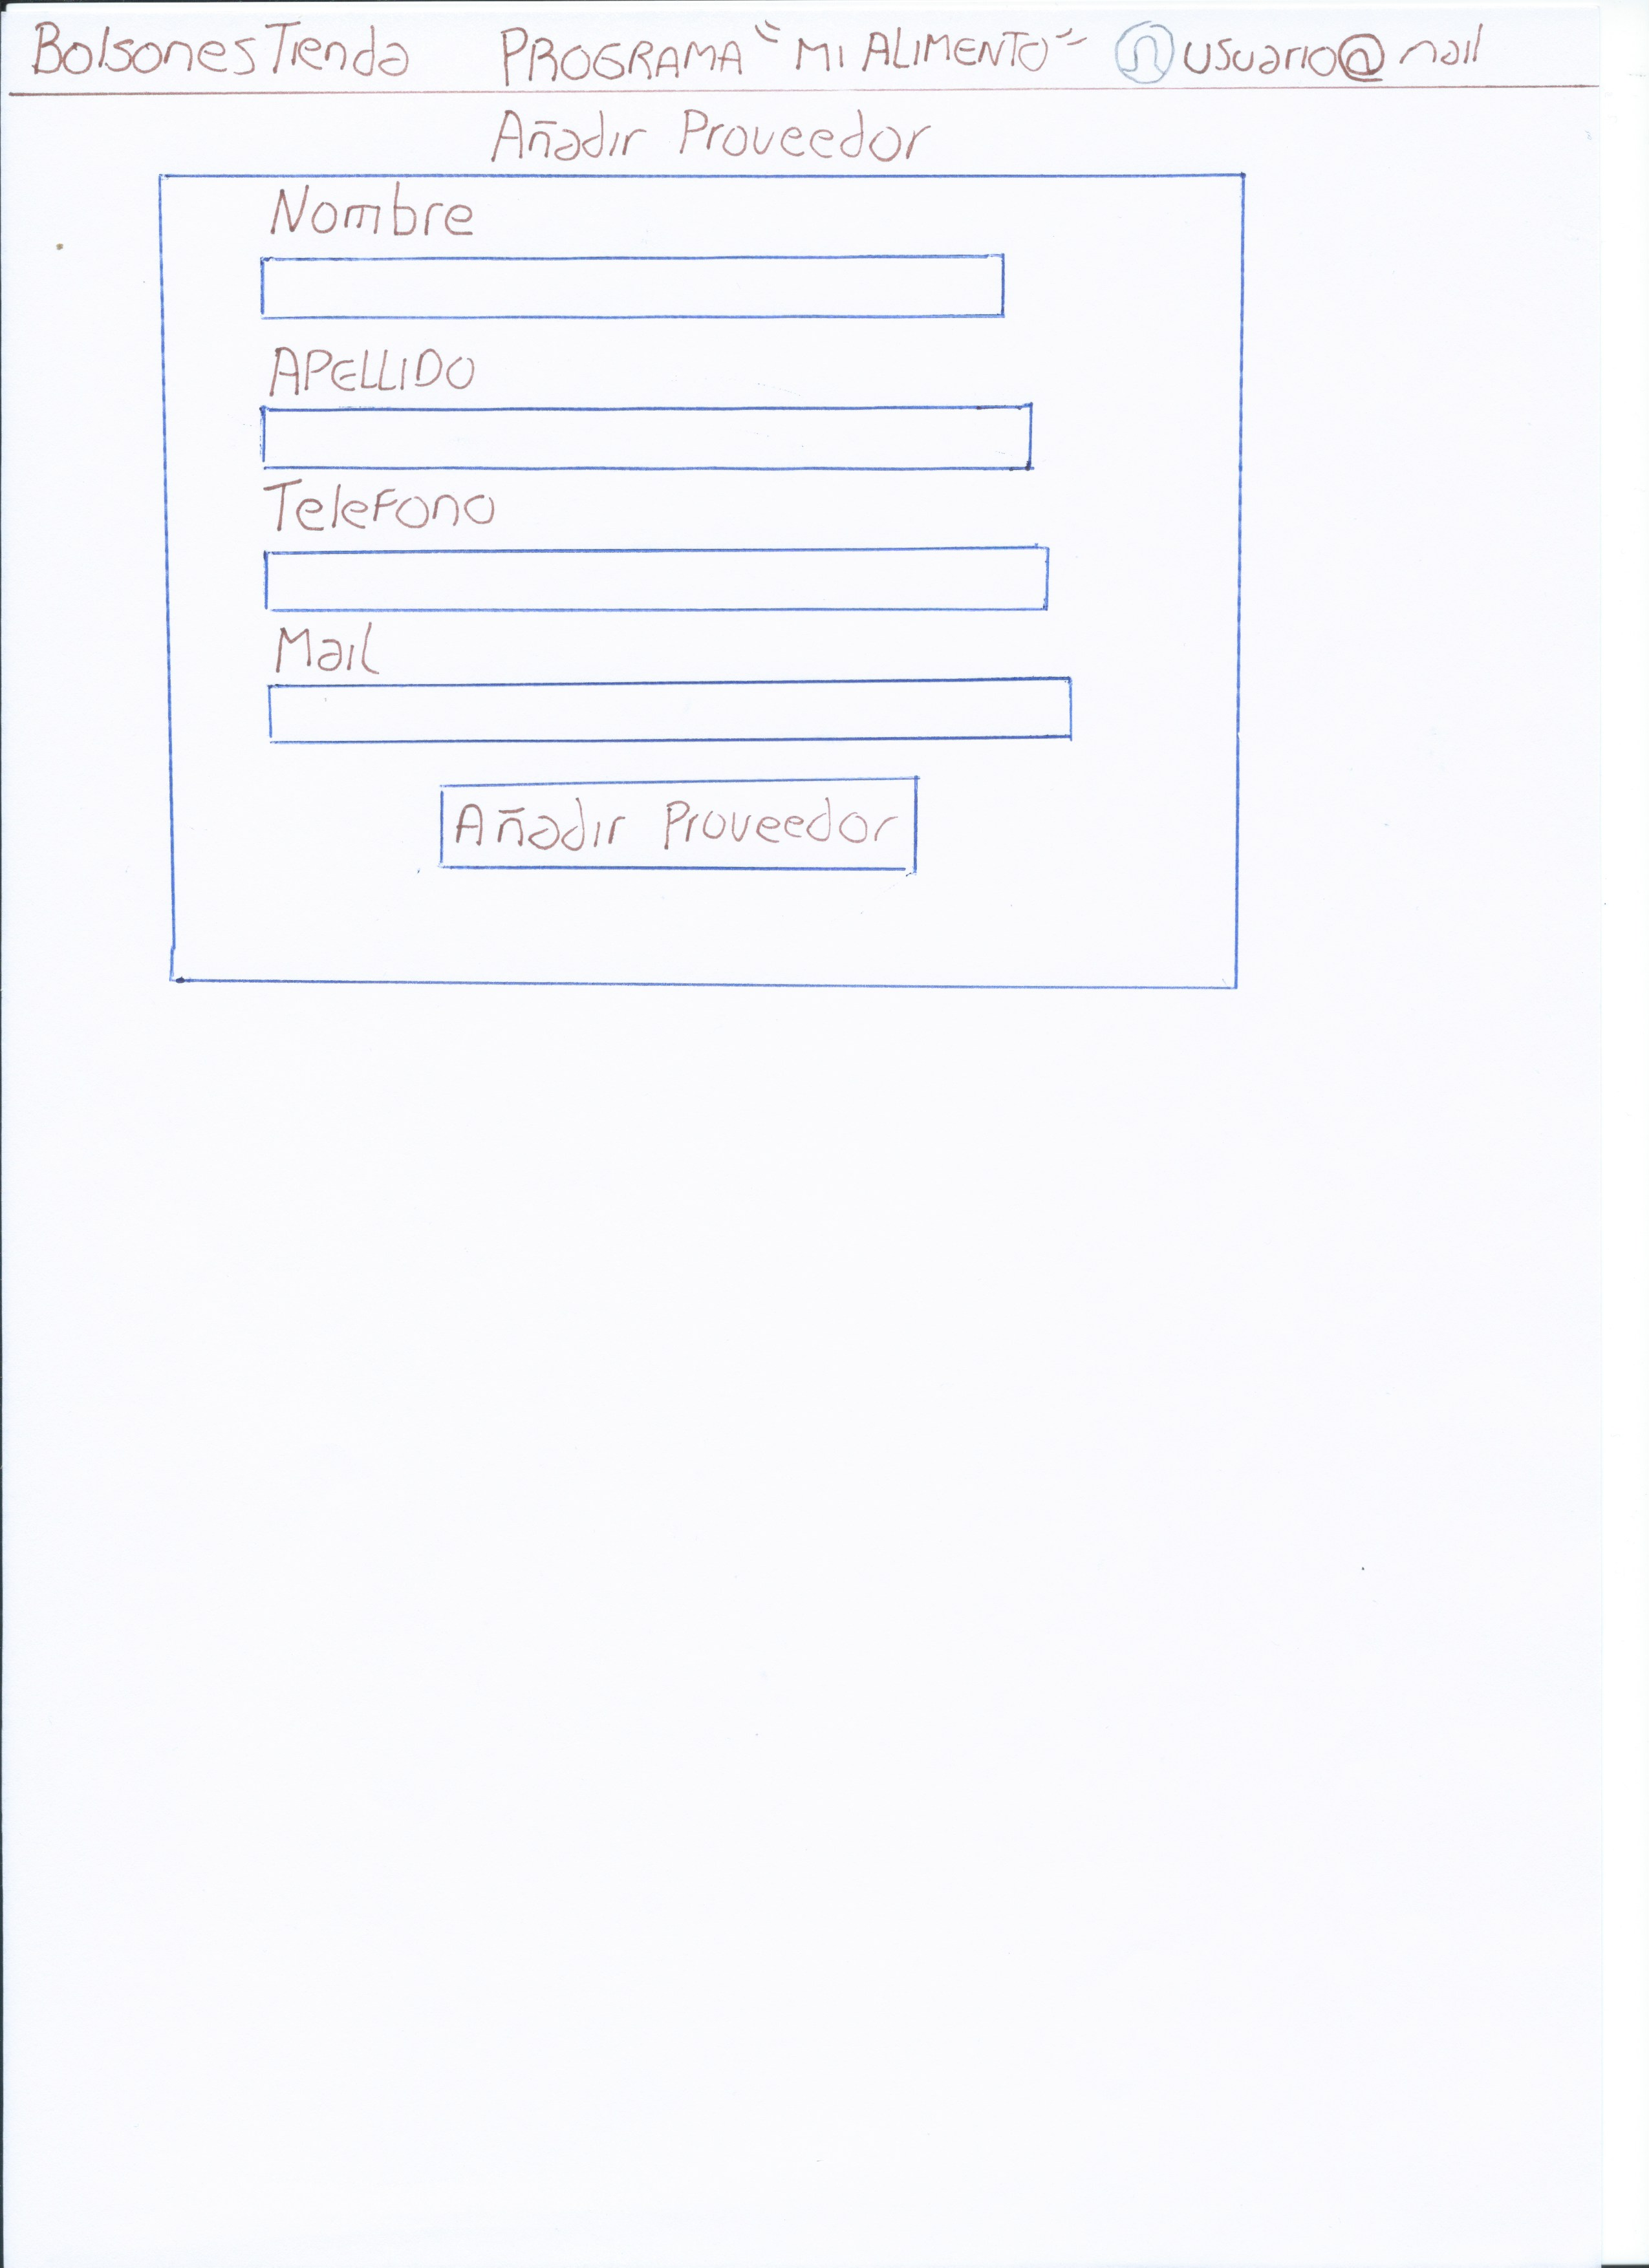 Bolsones Tienda PROGRAMA "MI ALIMENTO" usuario@mail
Añadir Proveedor
Nombre
APELLIDO
Telefono
Mail
Añadir Proveedor